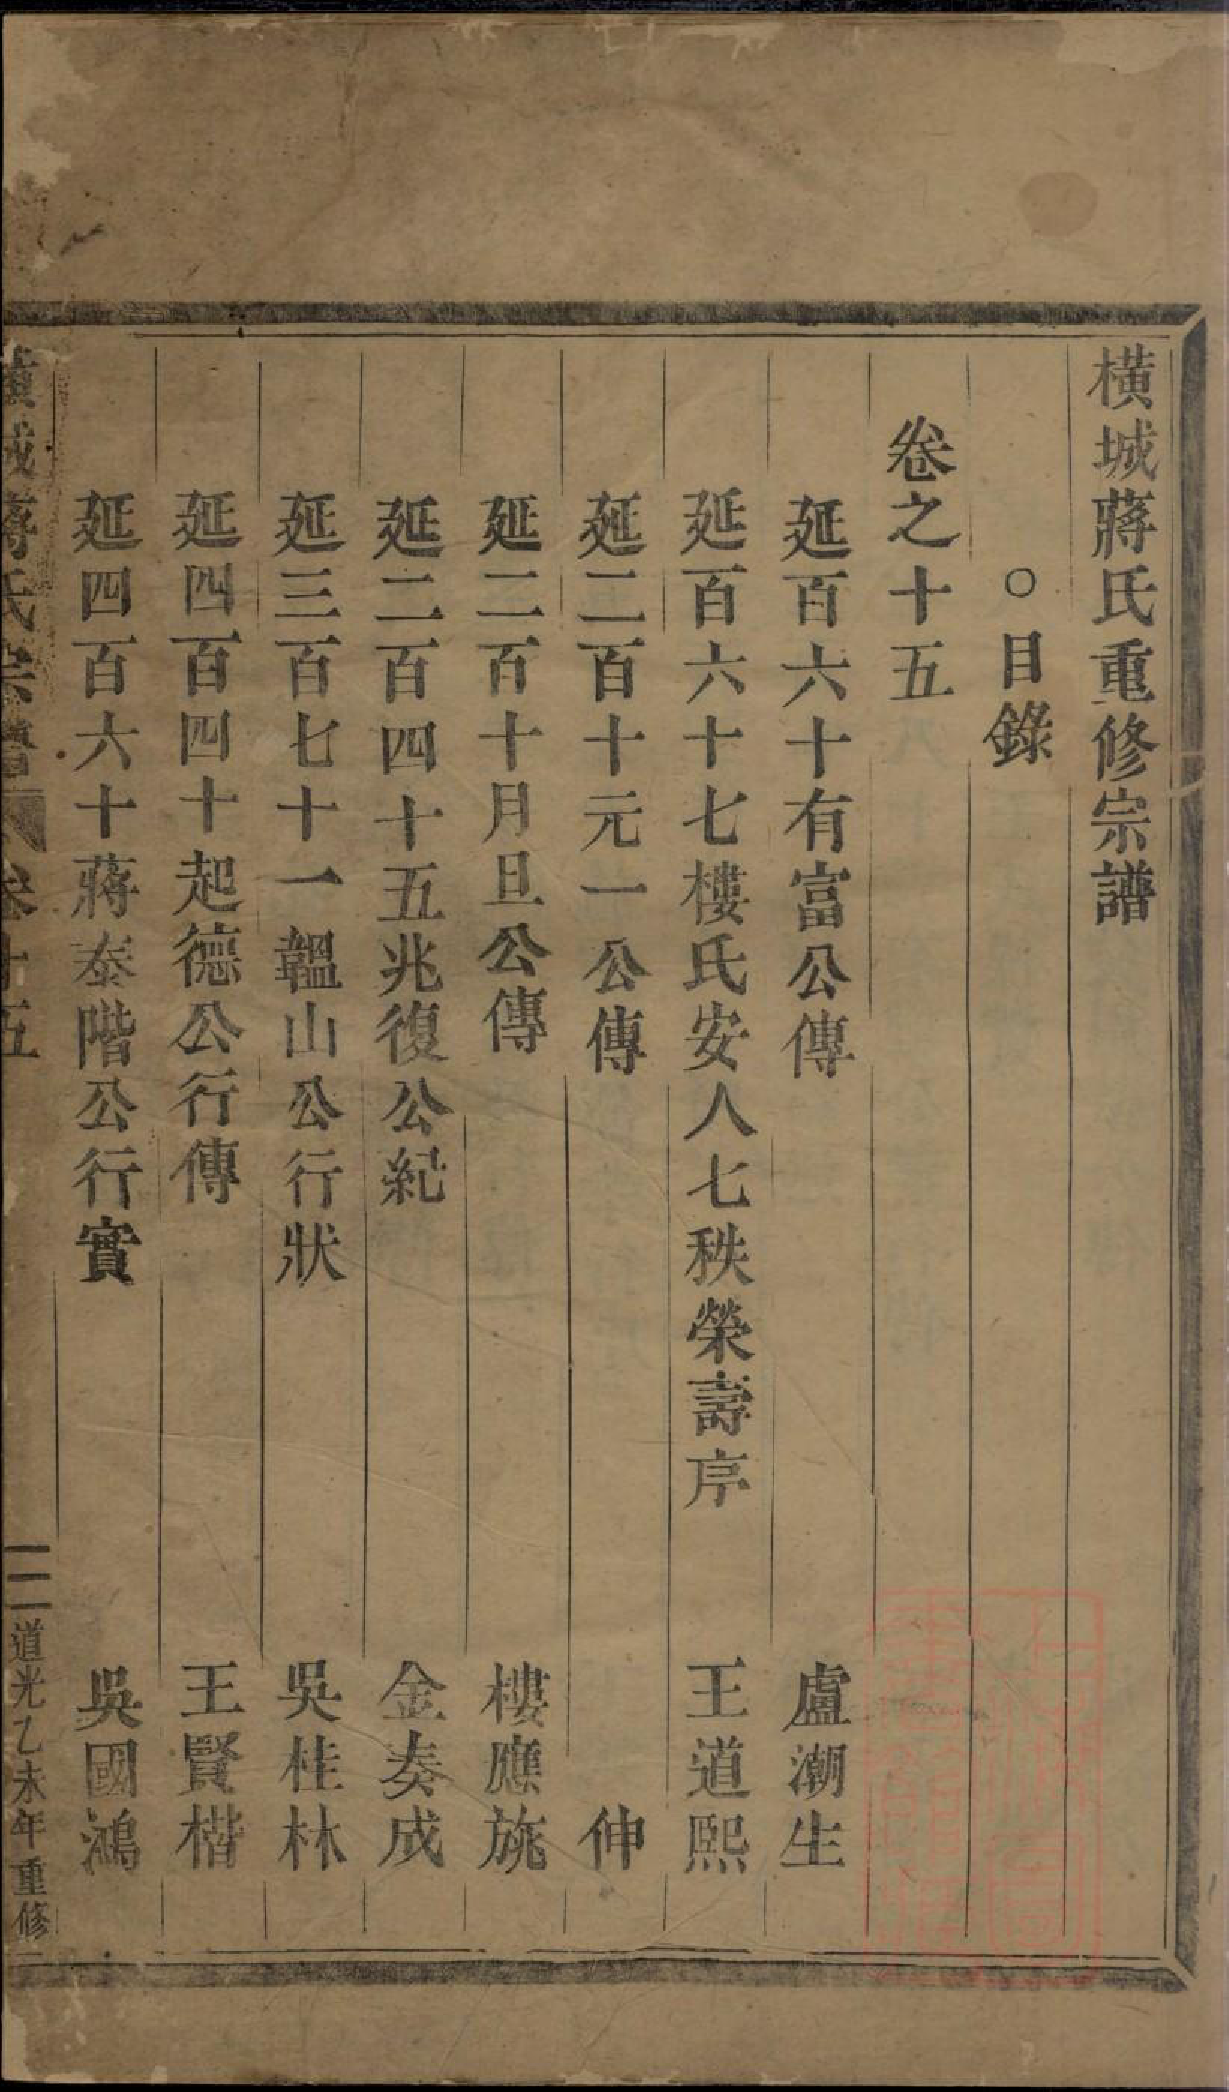 橫城蔣氏重修宗譜
○目錄
卷之十五
延百六十有富公傳 盧潮生
延百六十七樓氏安人七秩榮壽序 王道熙
延二百十元一公傳 伸
延二百十月旦公傳 樓應旐
延二百四十五兆復公紀 金奏成
延三百七十一韞山公行狀 吳桂林
延四百四十起德公行傳 王賢楷
延四百六十蔣泰階公行實 吳國鴻
橫城蔣氏宗譜 卷十五 道光乙未年重修